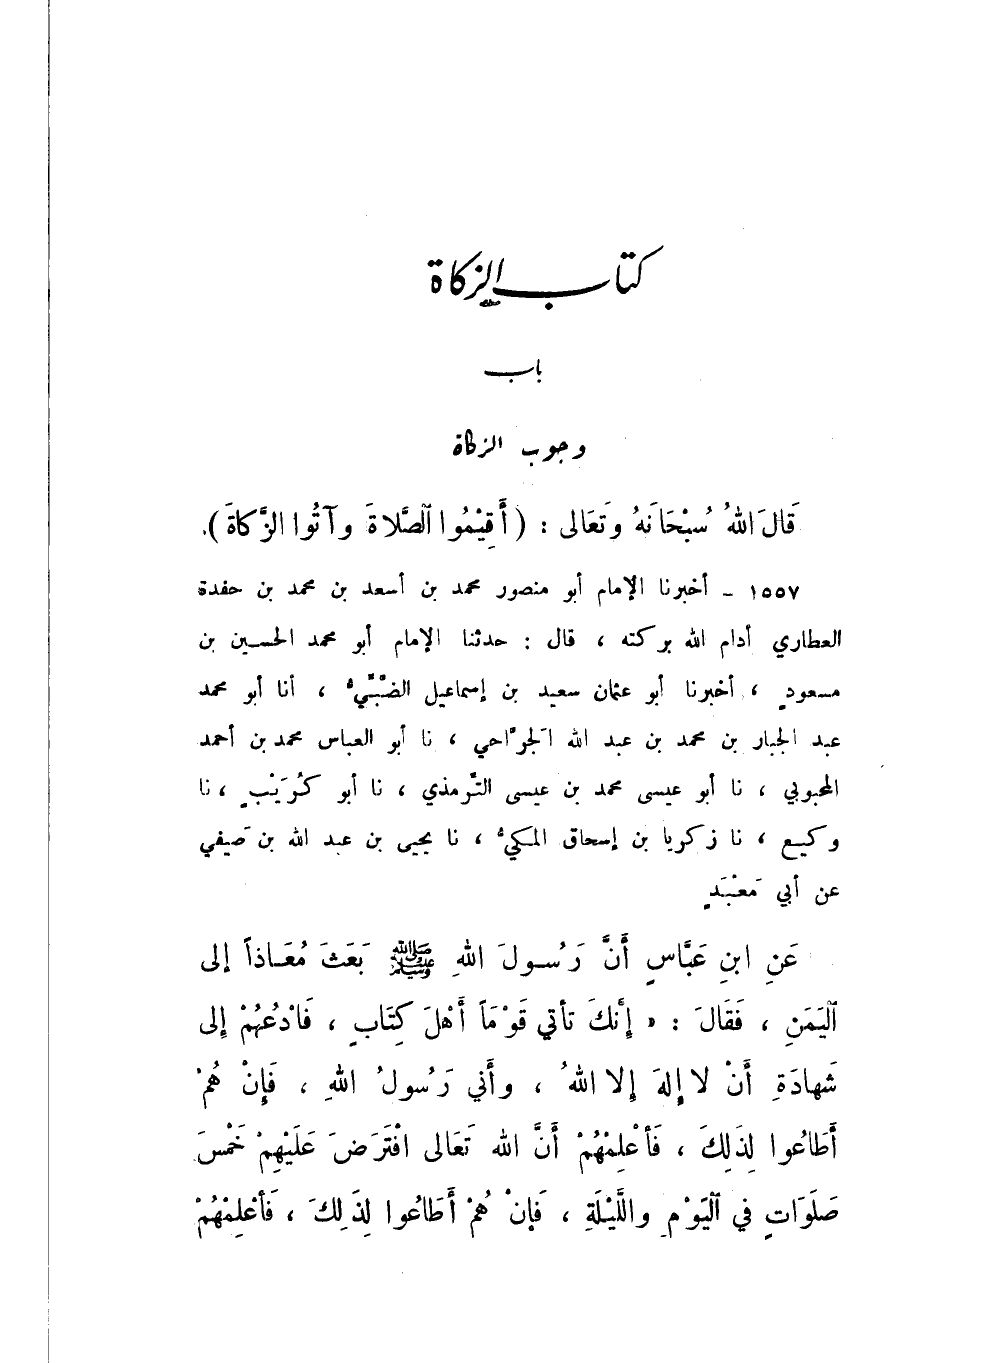 كتاب الزكاة
باب
وجوب الزكاة
قَالَ اللهُ سُبْحَانَهُ وتَعَالى : ( أَقِيْمُوا الصَّلاةَ وآتُوا الزَّكاةَ ).
١٥٥٧ ـ أخبرنا الإمام أبو منصور محمد بن أسعد بن محمد بن حفدة
العطاري أدام الله بركته ، قال : حدثنا الإمام أبو محمد الحسين بن
مسعودٍ ، أخبرنا أبو عثمان سعيد بن إسماعيل الضَّبِّيُّ ، أنا أبو محمد
عبد الجبار بن محمد بن عبد الله الجَرَّاحي ، نا أبو العباس محمد بن أحمد
المحبوبي ، نا أبو عيسى محمد بن عيسى التِّرمذي ، نا أبو كُرَيْبٍ ، نا
وكيع ، نا زكريا بن إسحاق المكيُّ ، نا يحيى بن عبد الله بن صَيفي
عن أبي مَعْبَدٍ
عَنِ ابنِ عَبَّاسٍ أَنَّ رَسُولَ اللهِ ﷺ بَعَثَ مُعَاذاً إلى
اليَمَنِ ، فَقَالَ : « إِنَّكَ تأتي قَوْمَاً أَهْلَ كِتَابٍ ، فَادْعُهُمْ إلى
شَهادَةِ أَنْ لا إلهَ إلا اللهُ ، وأَني رَسُولُ اللهِ ، فَإِنْ هُمْ
أَطَاعُوا لِذَلِكَ ، فَأَعْلِمْهُمْ أَنَّ الله تَعَالى افْتَرَضَ عَلَيْهِمْ خَمْسَ
صَلَوَاتٍ في اليَوْمِ واللَّيْلَةِ ، فَإِنْ هُمْ أَطَاعُوا لِذَلِكَ ، فَأَعْلِمْهُمْ